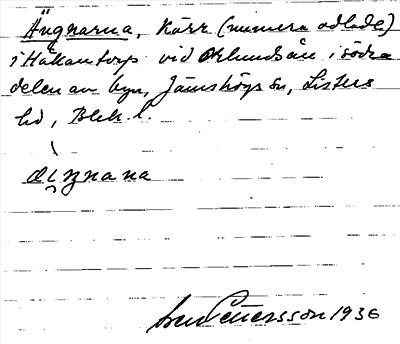 Ängnarna, Kärr (numera odlade)
i Håkantorp vid Orlundsån i södra
delen av byn, Jämshögs sn, Listers
hd, Blek. l.
Sven Petersson 1936